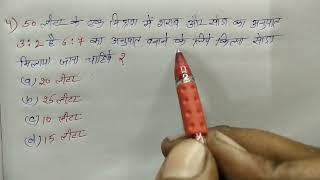 4) 50 लीटर के एक मिश्रण में शराब और सोडा का अनुपात
3:2 है 6:7 का अनुपात बनाने के लिये कितना सोडा
मिलाया जाना चाहिये ?
(a) 20 लीटर
(b) 25 लीटर
(c) 10 लीटर
(d) 15 लीटर